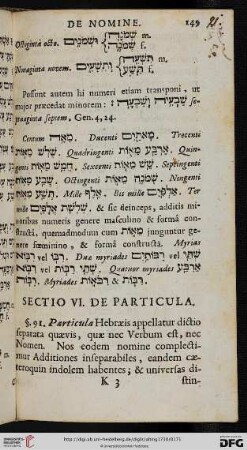 DE NOMINE. 149
Octiginta octo. שְׁמֹנִים וּשְׁמֹנָה m.
שְׁמֹנֶה f.
Nonaginta novem. תִּשְׁעִים וְתִשְׁעָה m.
תֵּשַׁע f.
Possunt autem hi numeri etiam transponi, ut
major præcedat minorem: שִׁבְעִים וְשִׁבְעָה: se-
ptuaginta septem, Gen. 4, 24.
Centum מֵאָה. Ducenti מָאתַיִם. Trecenti
שְׁלֹשׁ מֵאוֹת. Quadringenti אַרְבַּע מֵאוֹת. Quin-
genti חֲמֵשׁ מֵאוֹת. Sexcenti שֵׁשׁ מֵאוֹת. Septingenti
שְׁבַע מֵאוֹת. Octingenti שְׁמֹנֶה מֵאוֹת. Ningenti
תְּשַׁע מֵאוֹת. Mille אֶלֶף. Bis mille אַלְפַּיִם. Ter
mille שְׁלֹשֶׁת אֲלָפִים & sic deinceps, additis mi-
noribus numeris genere masculino & formâ constr-
uctâ, quemadmodum cum מֵאוֹת junguntur ge-
nere fœminino, & formâ constructâ. Myrias
רִבּוֹא vel רִבּוֹ. Duæ myriades רִבּוֹתַיִם vel שְׁתֵּי
רִבּוֹא vel שְׁתֵּי רִבּוֹת. Quatuor myriades אַרְבַּע
רִבּוֹא. Myriades רְבָבוֹת & רִבּוֹת.
SECTIO VI. DE PARTICULA.
§. 91. Particula Hebræis appellatur dictio
separata quævis, quæ nec Verbum est, nec
Nomen. Nos eodem nomine complecti-
mur Additiones inseparabiles, eandem cæ-
teroquin indolem habentes; & universas di-
K 3 stin-